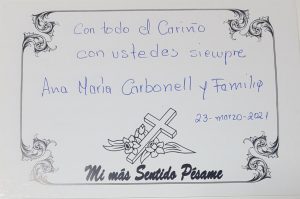 Con todo el Cariño
con ustedes siempre
Ana María Carbonell y Familia
23-marzo-2021
Mi más Sentido Pésame